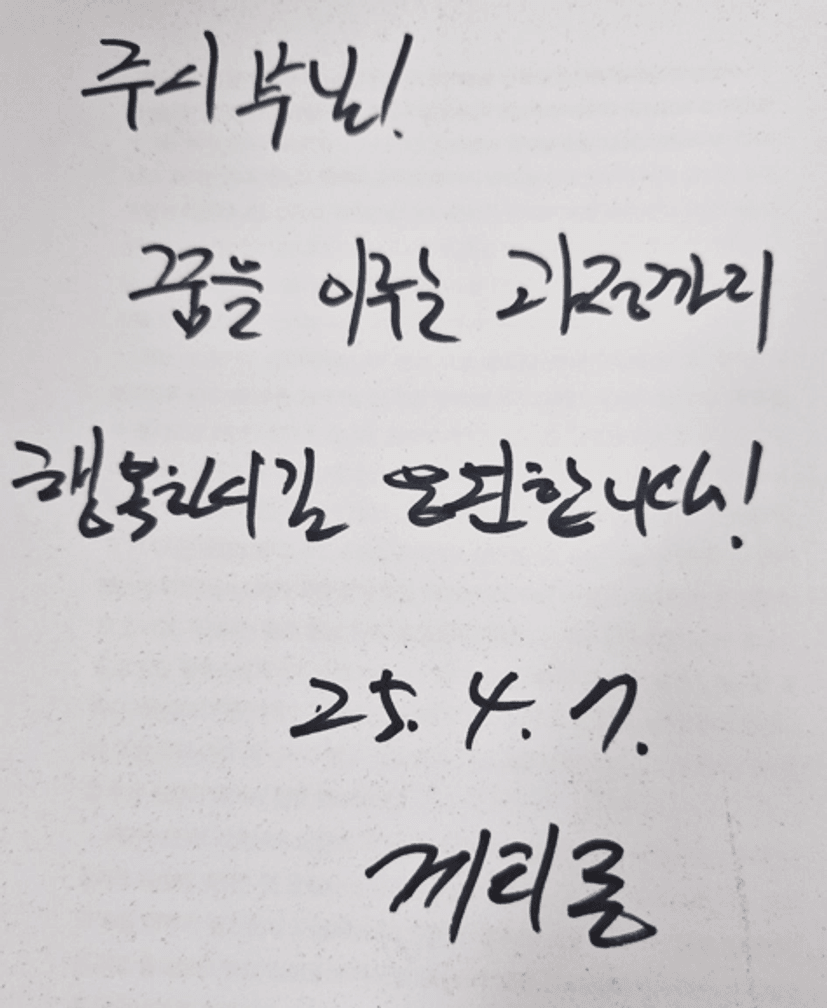 주시부님!
꿈을 이루는 과정까지
행복하시길 응원합니다!
25. 4. 7.
께티롱